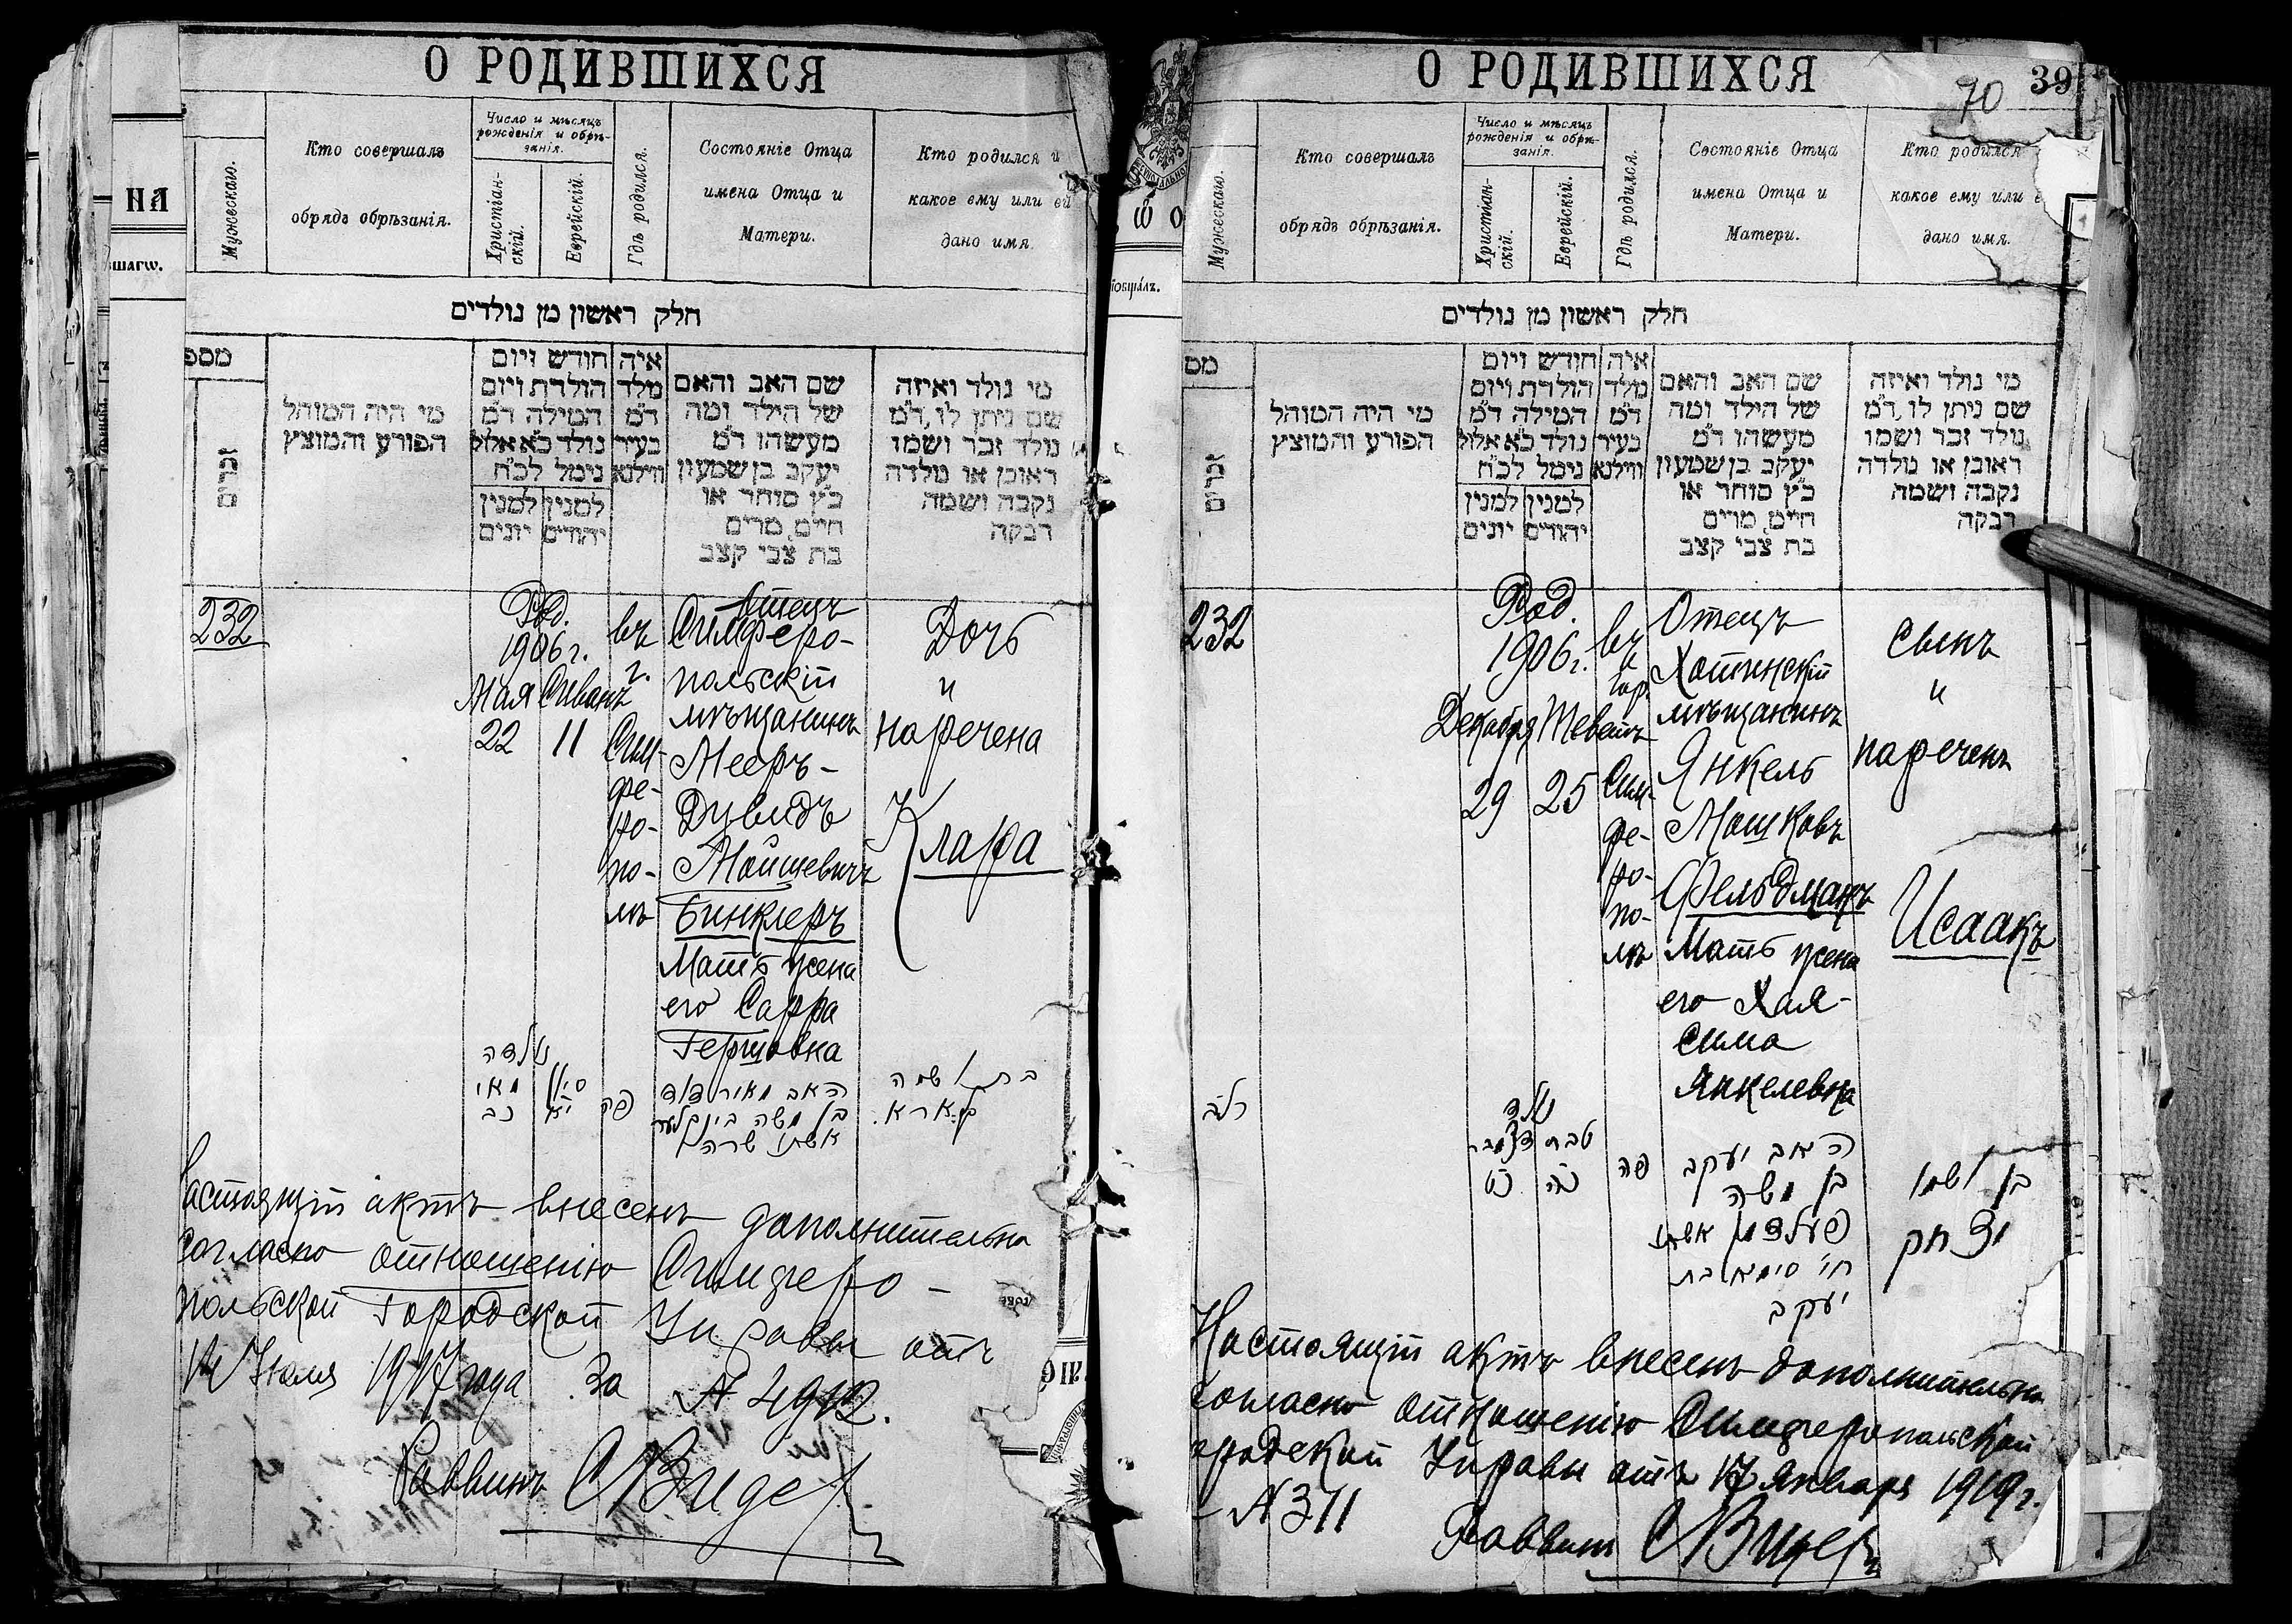 О РОДИВШИХСЯ
Мужескаго.
Кто совершалъ
обрядъ обрѣзанія.
Число и мѣсяцъ
рожденія и обрѣ-
занія.
Христіан-
скій.
Еврейскій.
Гдѣ родился.
Состояніе Отца
имена Отца и
Матери.
Кто родился и
какое ему или ей
дано имя.
НА
חלק ראשון מן נולדים
מספ
זכרים
מי היה המוהל
הפורע והמוצץ
חודש ויום
הולדת ויום
המילה ד"מ
נולד כ"א אלול
נימל לכ"ח
למנין יהודים
למנין יונים
איה
מלד
ד"מ
בעיר
ווילנא
שם האב והאם
של הילד ומה
מעשהו ד"מ
יעקב בן שמעון
כ"ץ סוחר או
חיים, מרים
בת צבי קצב
מי נולד ואיזה
שם ניתן לו, ד"מ
נולד זכר ושמו
ראובן או נולדה
נקבה ושמה
רבקה
232
Род.
1906 г.
Мая Сиванъ
22 11
въ
г.
Сим-
фе-
ро-
по-
лѣ
Отецъ
Симферо-
польскій
мѣщанинъ
Мееръ-
Дувидъ
Мойшевичъ
Бинклеръ
Мать жена
его Сарра
Гершовна
Дочь
и
наречена
Клара
נולדה
סיון מאי
יא כב
פה
האב מאיר דוד
בן משה בינקלער
אשתו שרה
בת ושמה
קלארא.
астоящій актъ внесенъ дополнительно
согласно отношенію Симферо-
польской Городской Управы отъ
14 Іюля 1917 года за № 4912.
Раввинъ
О РОДИВШИХСЯ
39
70
Мужескаго.
Кто совершалъ
обрядъ обрѣзанія.
Число и мѣсяцъ
рожденія и обрѣ-
занія.
Христіан-
скій.
Еврейскій.
Гдѣ родился.
Состояніе Отца
имена Отца и
Матери.
Кто родился
какое ему или е
дано имя.
חלק ראשון מן נולדים
מס
זכרים
מי היה המוהל
הפורע והמוצץ
חודש ויום
הולדת ויום
המילה ד"מ
נולד כ"א אלול
נימל לכ"ח
למנין יהודים
למנין יונים
איה
מלד
ד"מ
בעיר
ווילנא
שם האב והאם
של הילד ומה
מעשהו ד"מ
יעקב בן שמעון
כ"ץ סוחר או
חיים, מרים
בת צבי קצב
מי נולד ואיזה
שם ניתן לו, ד"מ
נולד זכר ושמו
ראובן או נולדה
נקבה ושמה
רבקה
232
Род.
1906 г.
Декабря Теветъ
29 25
въ
гор.
Сим-
фе-
ро-
по-
лѣ
Отецъ
Хотинскій
мѣщанинъ
Янкель
Мошковъ
Фельдманъ
Мать жена
его Хая-
Сима
Янкелевна
Сынъ
и
нареченъ
Исаакъ
רלב
נולד
טבת דצמבר
כה כט
פה
האב יעקב
בן משה
פעלדמן אשתו
חי' סימא בת
יעקב
בן ושמו
יצחק
Настоящій актъ внесенъ дополнительно
согласно отношенію Симферопольской
городской Управы отъ 17 Января 1919 г.
№ 311
Раввинъ